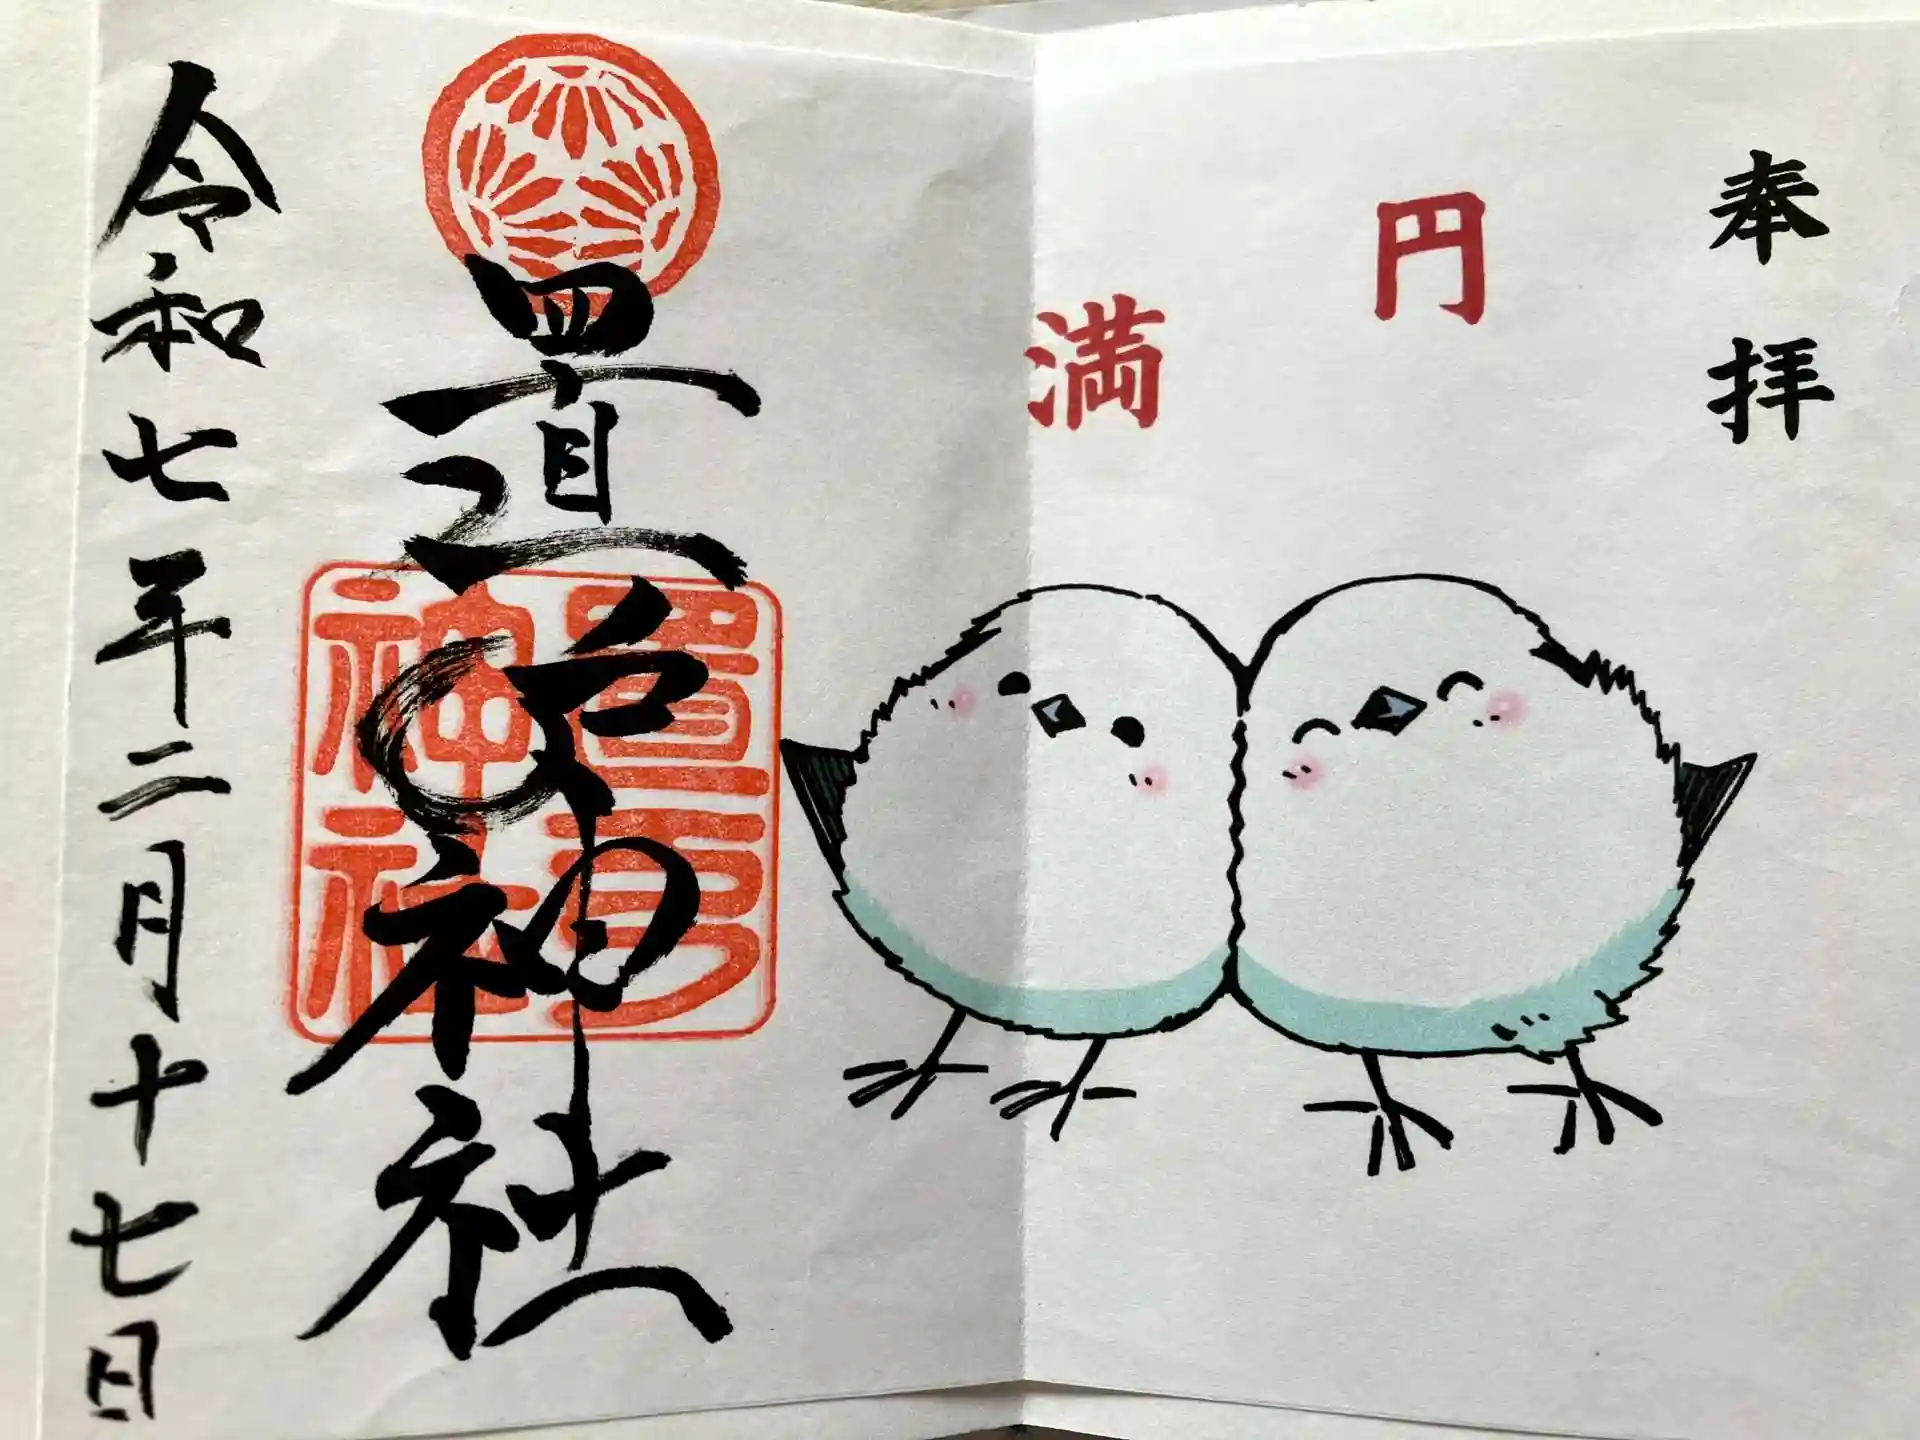 奉拝
円満
置戸神社
置戸
神社
令和七年二月十七日